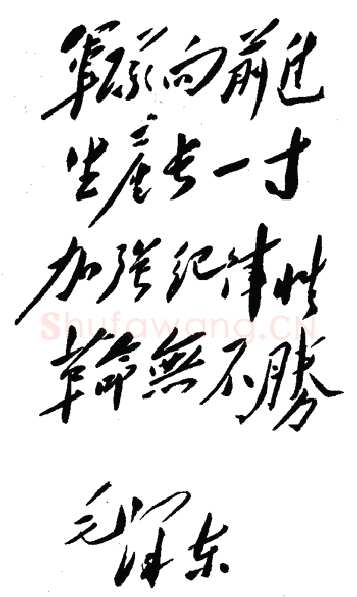 军队向前进
生产长一寸
加强纪律性
革命無不勝
毛泽东
Shufawang.CN